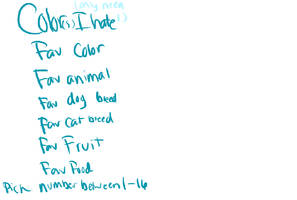 (only need
Color(s) I hate
Fav color
Fav animal
Fav dog breed
Fav cat breed
Fav Fruit
Fav Food
Pick number between 1-16